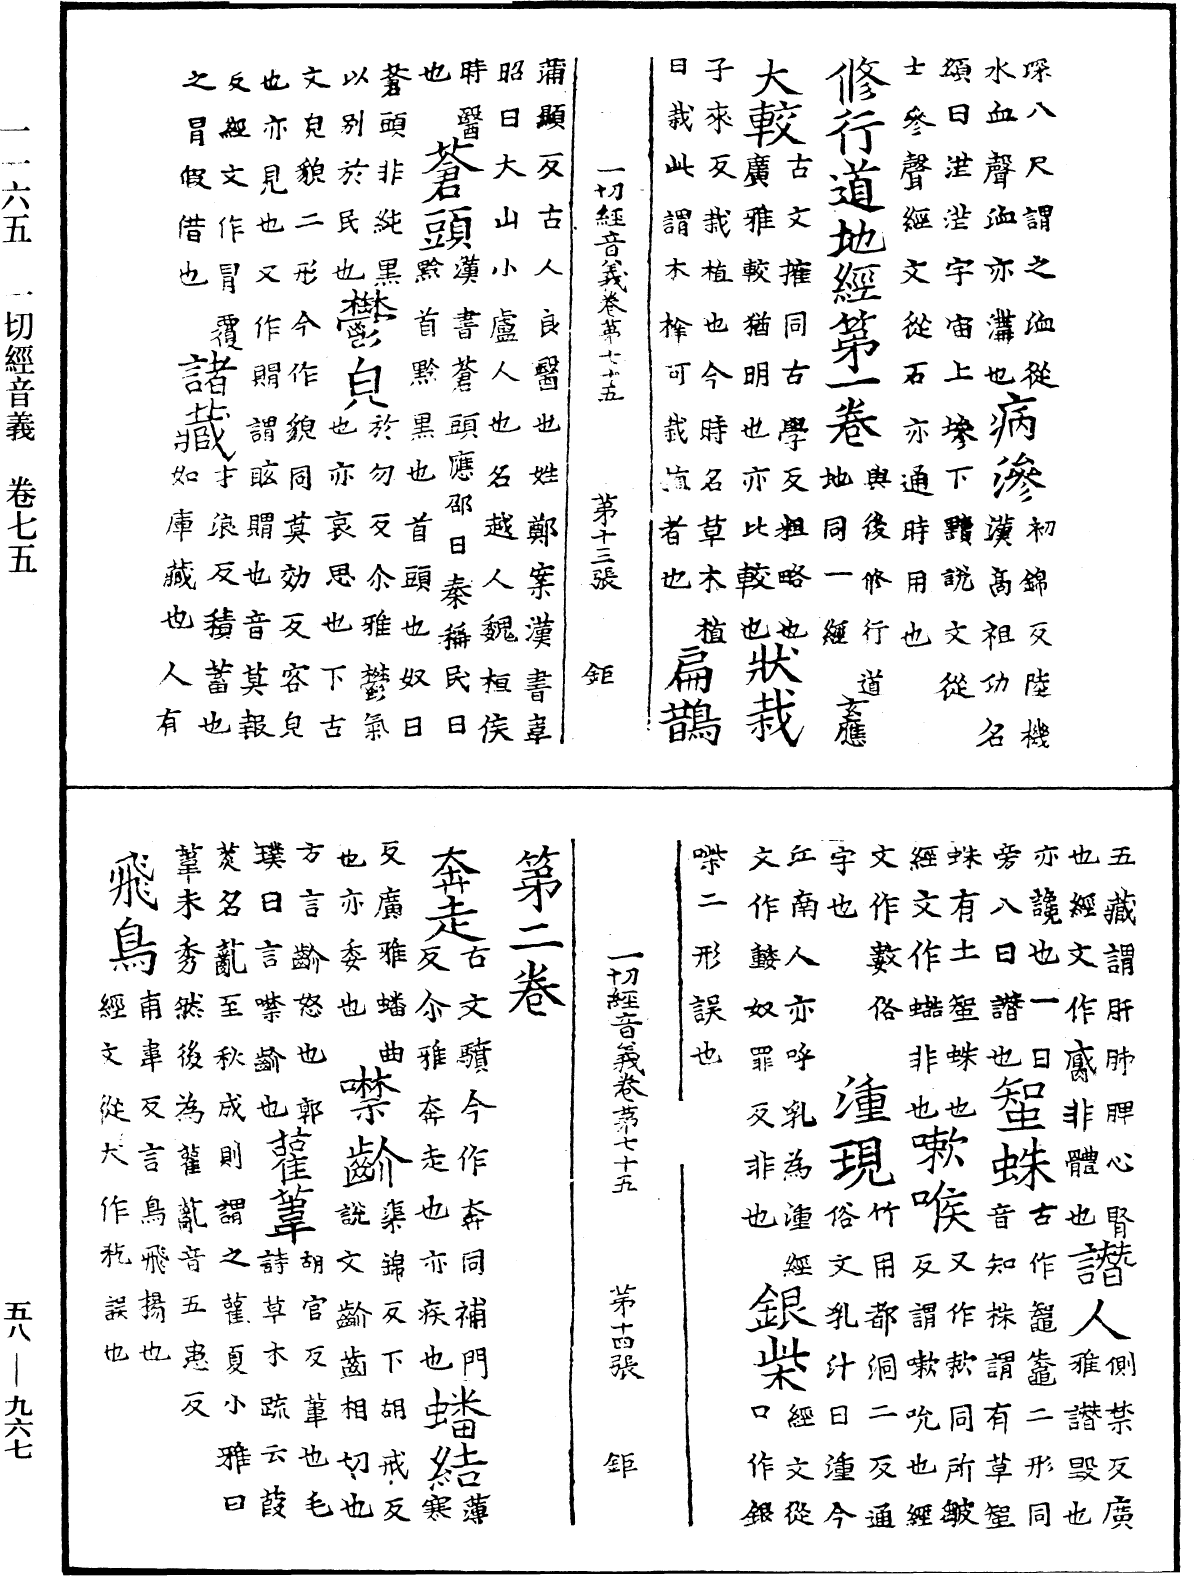 深八尺謂之洫從
水血聲洫亦溝也病滲初錦反陸機漢高祖功名
頌曰茫茫宇宙上墋下黷說文從
士參聲經文從石亦通時用也
修行道地經第一卷與後修行道地同一經玄應
大較古文搉同古學反粗略也廣雅較猶明也亦比較也狀栽
子來反栽植也今時名草木植
曰栽此謂木榨可栽植者也扁鵲
一切經音義卷第七十五 第十三張 鉅
蒲顯反古人良醫也姓鄭案漢書韋
昭曰大山小盧人也名越人魏桓侯
時醫也蒼頭漢書蒼頭應邵曰秦稱民曰黔首黔黑也首頭也奴曰
蒼頭非純黑
以別於民也鬱皃於勿反尒雅鬱氣也亦哀思也下古
文皃貌二形今作貌同莫効反容皃
也亦見也又作䝿謂眩䝿也音莫報
反經文作冒覆
之冒假借也諸藏才浪反積蓄也如庫藏也人有
五藏謂肝肺脾心腎
也經文作臓非體也譖人側禁反廣雅譖毀也
亦讒也一曰
旁入曰譖也蟹蛛古作鼅鼄二形同音知株謂有草蟹
蛛有土蟹蛛也
經文作蜘非也嗽喉又作欶同所皺反謂嗽吮也經
文作藪俗
字也湩現竹用都洞二反通俗文乳汁曰湩今
江南人亦呼乳為湩經
文作䗬奴罪反非也銀柴經文從口作銀
㗫二形誤也
一切經音義卷第七十五 第十四張 鉅
第二卷
奔走古文驞今作奔同補門反尒雅奔走也亦疾也蟠結薄寒
反廣雅蟠曲
也亦委也噤齘渠錦反下胡戒反說文齘齒相切也
方言齘怒也郭
璞曰言噤齘也雚葦胡官反雚也毛詩草木疏云葭
菼名亂至秋成則謂之雚夏小雅曰
葦未秀然後為雚亂音五患反
飛鳥甫韋反言鳥飛揚也經文從犬作㹃誤也
一一六五 一切經音義 卷七五
五八—九六七